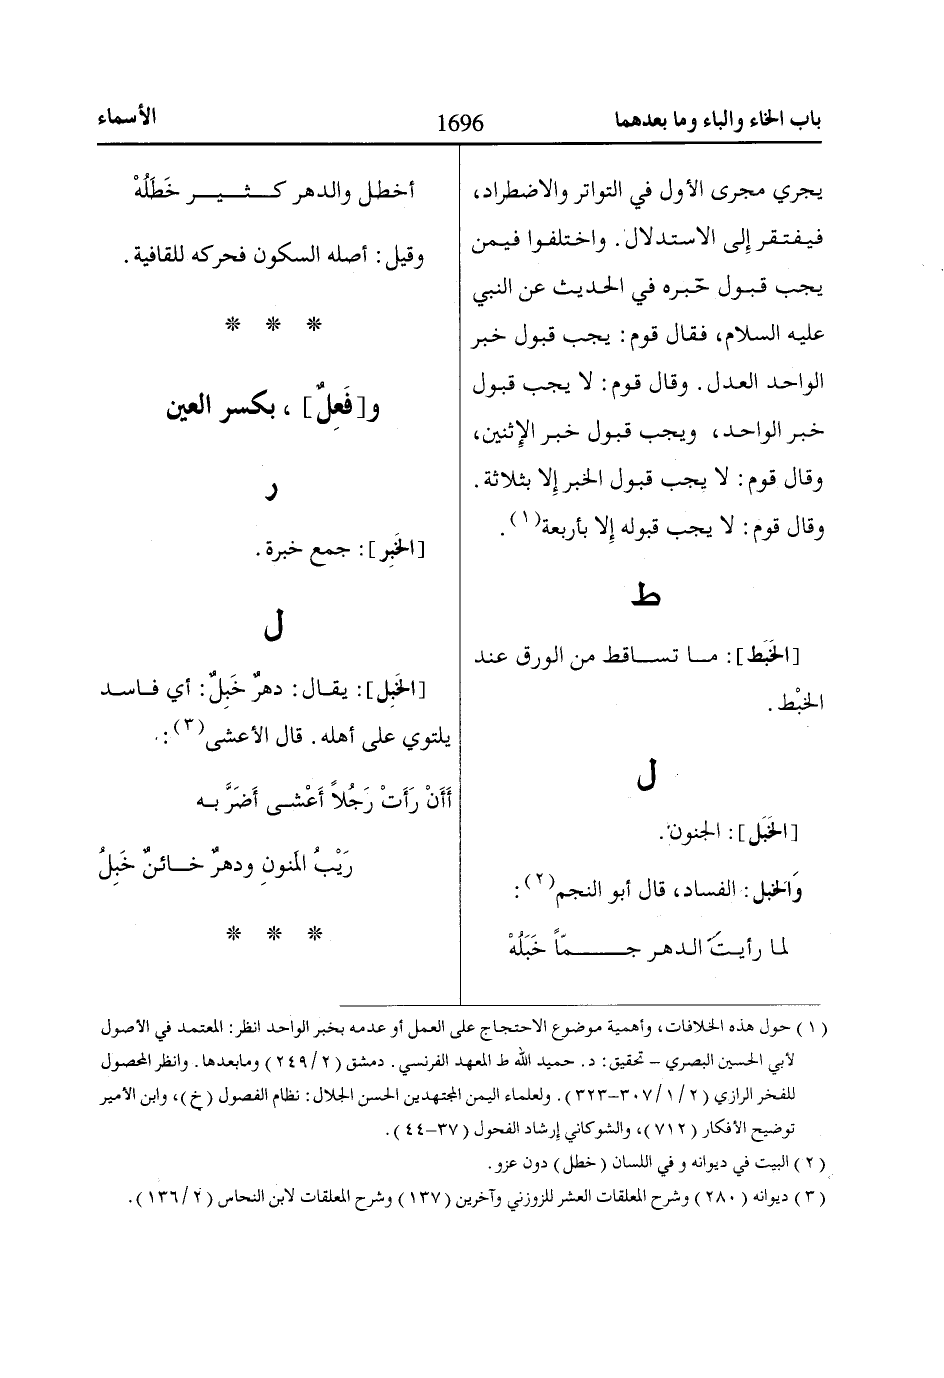 باب الخاء والباء وما بعدهما
1696
الأسماء
يجري مجرى الأول في التواتر والاضطراد،
فيفتقر إلى الاستدلال. واختلفوا فيمن
يجب قبول خبره في الحديث عن النبي
عليه السلام، فقال قوم: يجب قبول خبر
الواحد العدل. وقال قوم: لا يجب قبول
خبر الواحد، ويجب قبول خبر الإثنين،
وقال قوم: لا يجب قبول الخبر إلا بثلاثة.
وقال قوم: لا يجب قبوله إلا بأربعة(١).
ط
[الخَبَط]: ما تساقط من الورق عند
الخبْط.
ل
[الخَبَل]: الجنون.
وَالخبل: الفساد، قال أبو النجم(٢):
لما رأيتَ الدهر جمّاً خَبَلُهْ
أخطل والدهر كثير خَطَلُهْ
وقيل: أصله السكون فحركه للقافية.
* * *
و[فَعِلٌ]، بكسر العين
ر
[الخَبِر]: جمع خبرة.
ل
[الخَبِل]: يقال: دهرٌ خَبِلٌ: أي فاسد
يلتوي على أهله. قال الأعشى(٣):
أأَنْ رَأَتْ رَجُلاً أَعْشى أَضَرَّ به
رَيْبُ المَنونِ ودهرٌ خائنٌ خَبِلُ
* * *
(١) حول هذه الخلافات، وأهمية موضوع الاحتجاج على العمل أو عدمه بخبر الواحد انظر: المعتمد في الأصول
لأبي الحسين البصري – تحقيق: د. حميد الله ط المعهد الفرنسي. دمشق (٢/٢٤٩) ومابعدها. وانظر المحصول
للفخر الرازي (٢/١/٣٠٧–٣٢٣). ولعلماء اليمن المجتهدين الحسن الجلال: نظام الفصول (خ)، وابن الأمير
توضيح الأفكار (٧١٢)، والشوكاني إرشاد الفحول (٣٧–٤٤).
(٢) البيت في ديوانه و في اللسان (خطل) دون عزو.
(٣) ديوانه (٢٨٠) وشرح المعلقات العشر للزوزني وآخرين (١٣٧) وشرح المعلقات لابن النحاس (٢/١٣٦).